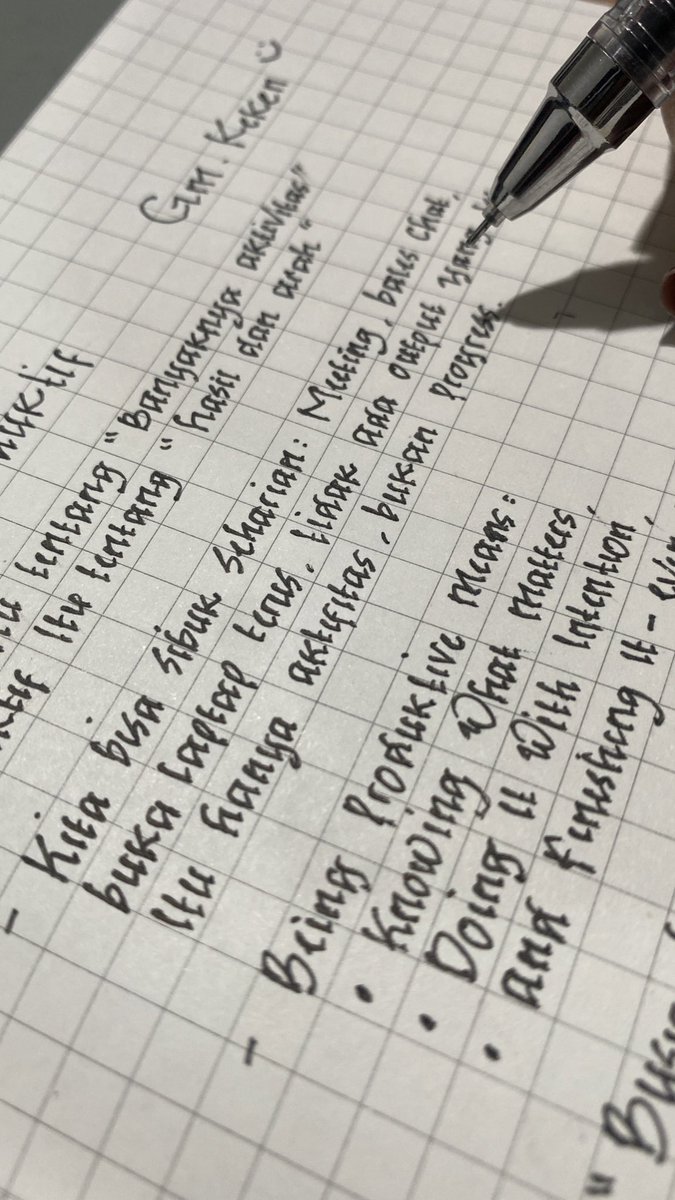 Gm. Keken :)
tentang "Banyaknya aktivitas"
itu tentang "hasil dan arah"
- Kita bisa sibuk seharian: Meeting, bales chat,
buka laptop terus, tidak ada output yang
itu hanya aktifitas, bukan progress.
- Being Produktive means:
• Knowing What matters,
• Doing it With intention,
• and Finishing it -
"Busy